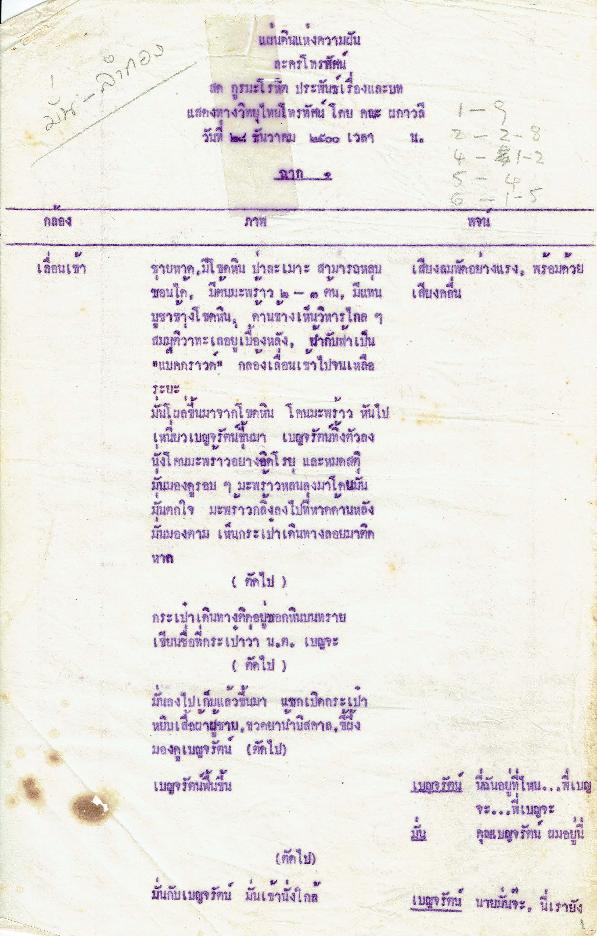 แผ่นดินแห่งความฝัน
ละครโทรทัศน์
สด กูรมะโรหิต ประพันธ์เรื่องและบท
แสดงทางวิทยุไทยโทรทัศน์ โดย คณะ ผกาวลี
วันที่ ๒๘ ธันวาคม ๒๕๐๐ เวลา น.
มั่น - ลำทอง
1 - 9
2 - 2-8
4 - 1-2
5 - 4
6 - 1-5
ฉาก ๑
กล้อง ภาพ พจน์
เลื่อนเข้า ชายหาด, มีโขดหิน ป่าละเมาะ สามารถหลบ เสียงลมพัดอย่างแรง, พร้อมด้วย
ซ่อนได้, มีต้นมะพร้าว ๒ - ๓ ต้น, มีแทน เสียงคลื่น
บูชาข้างโขดหิน, ด้านข้างเห็นวิหารไกล ๆ
สมมุติว่าทะเลอยู่เบื้องหลัง, ฟ้ากับฟ้าเป็น
"แบ็คกราวด์" กล้องเลื่อนเข้าไปจนเหลือ
ระยะ
มั่นโผล่ขึ้นมาจากโขดหิน โคนมะพร้าว หันไป
เหนี่ยวเบญจรัตน์ขึ้นมา เบญจรัตน์ทิ้งตัวลง
นั่งโคนมะพร้าวอย่างอิดโรย และหมดสติ
มั่นมองดูรอบ ๆ มะพร้าวหล่นลงมาโดนมั่น
มั่นตกใจ มะพร้าวกลิ้งลงไปที่หาดด้านหลัง
มั่นมองตาม เห็นกระเป๋าเดินทางลอยมาติด
หาด
( ตัดไป )
กระเป๋าเดินทางติดอยู่ซอกหินบนทราย
เขียนชื่อที่กระเป๋าว่า น.ต. เบญจะ
( ตัดไป )
มั่นลงไปเก็บแล้วขึ้นมา แขกเปิดกระเป๋า
หยิบเสื้อผ้าผู้ชาย, ขวดยาน้ำบิสตาล, ขี้ผึ้ง
มองดูเบญจรัตน์ (ตัดไป)
เบญจรัตน์ฟื้นขึ้น เบญจรัตน์ นี่ฉันอยู่ที่ไหน...พี่เบญ
จะ...พี่เบญจะ
มั่น คุณเบญจรัตน์ ผมอยู่นี่
(ตัดไป)
มั่นกับเบญจรัตน์ มั่นเข้านั่งใกล้ เบญจรัตน์ นายมั่นจ๊ะ, นี่เรายัง